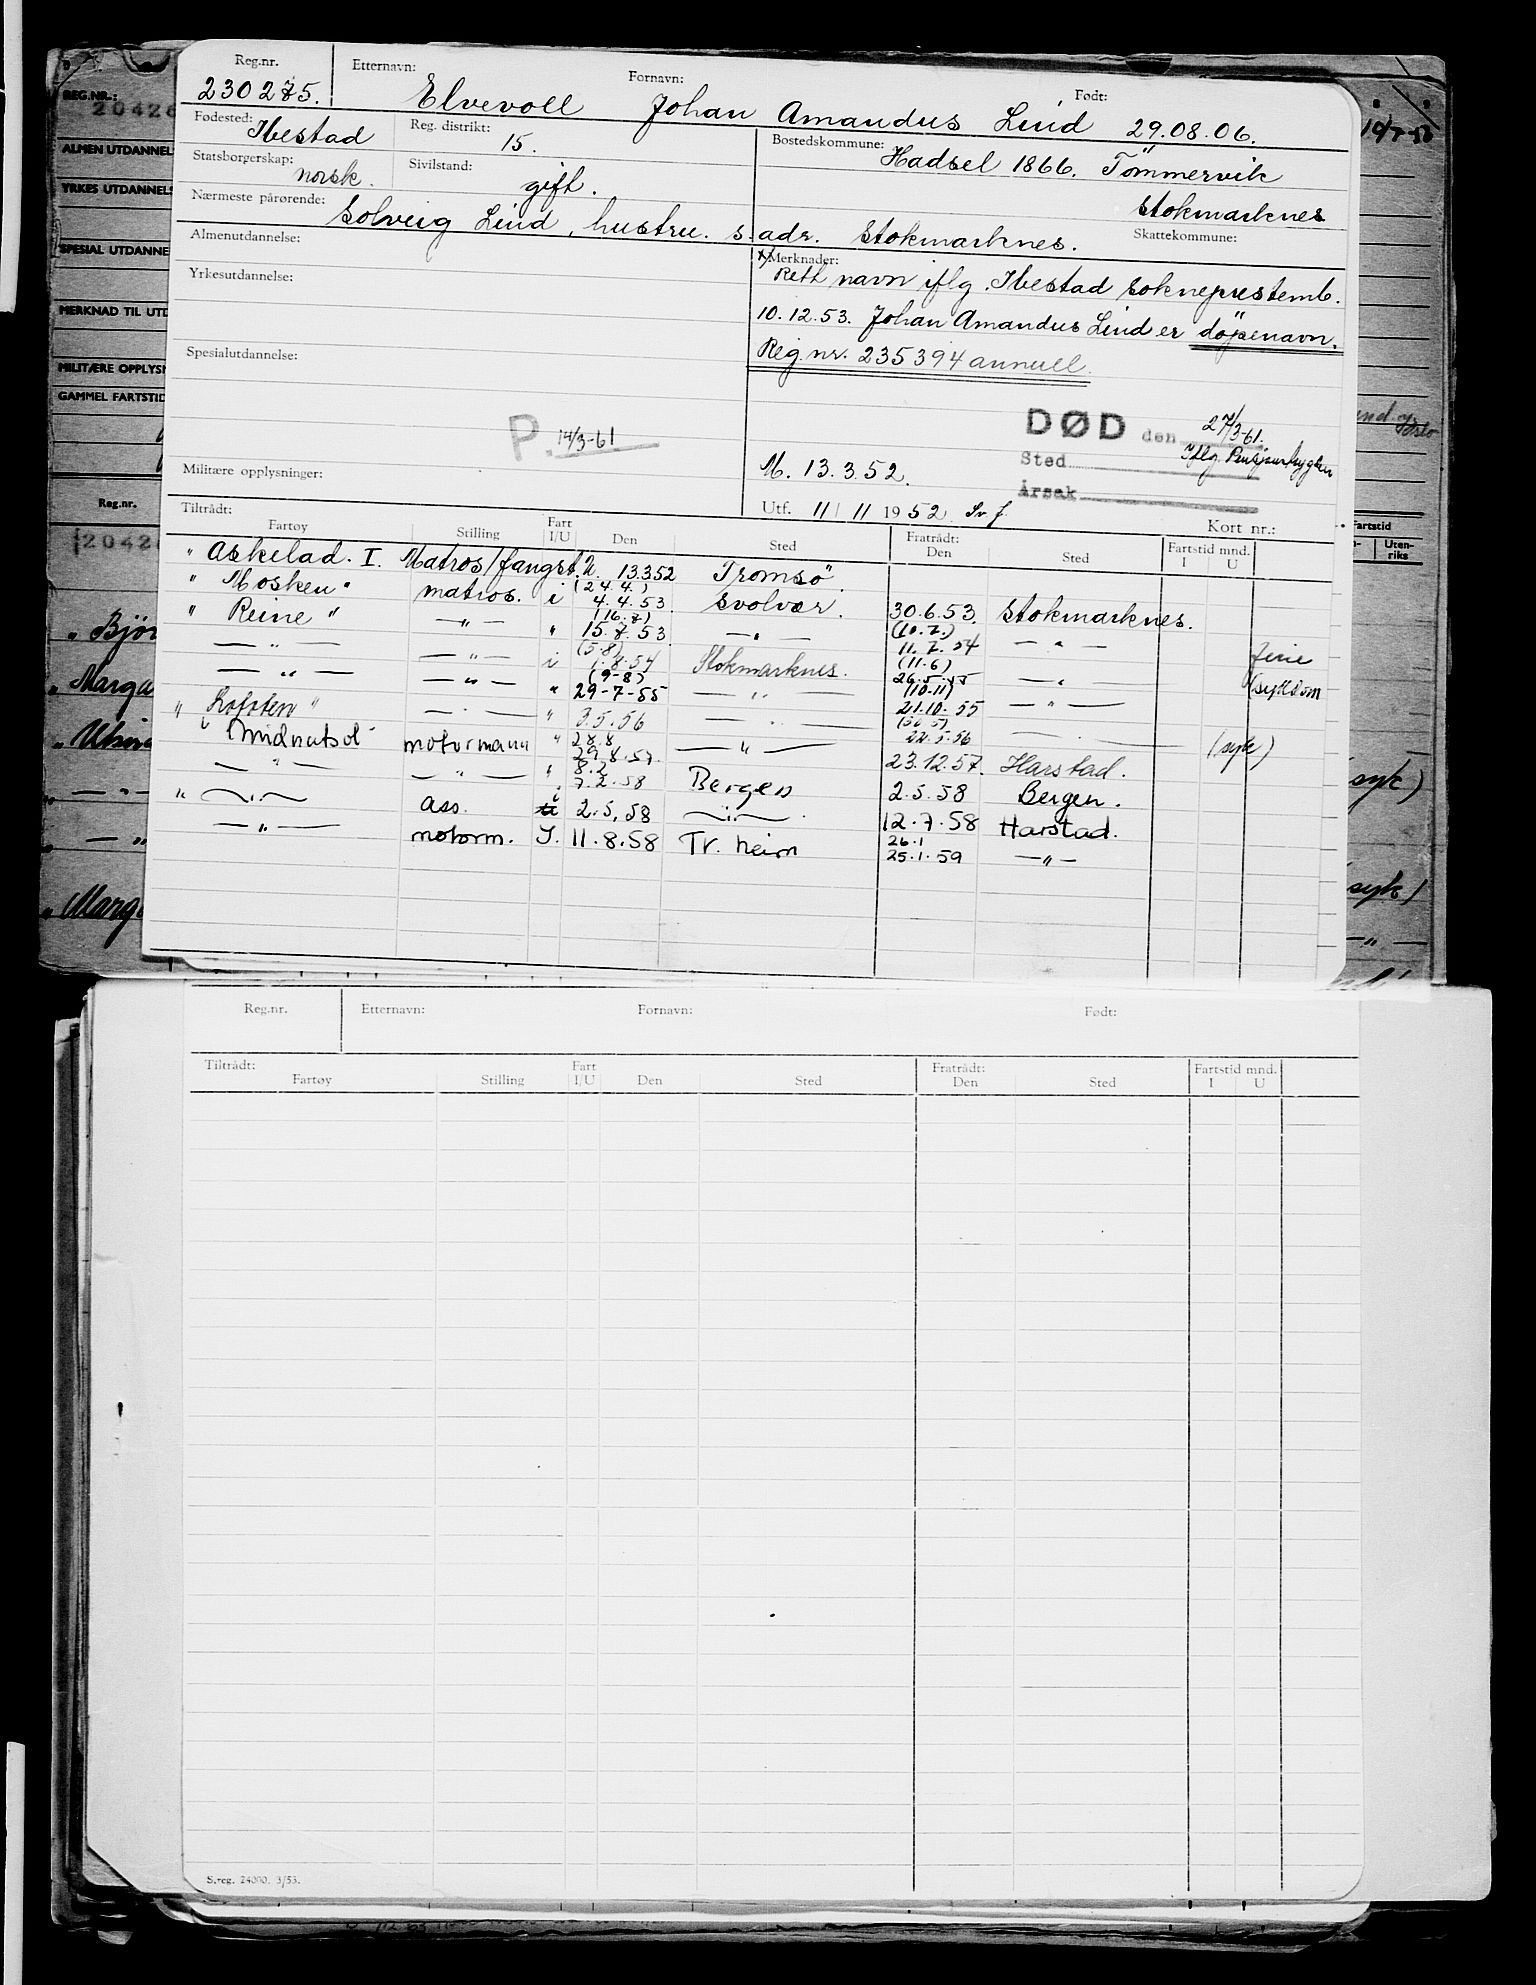 Reg.nr. Etternavn: Fornavn: Født:
230275. Elvevoll Johan Amandus Lind 29.08.06.
Fødested: Ibestad Reg. distrikt: 15. Bostedskommune: Hadsel 1866. Tömmervik
Statsborgerskap: norsk. Sivilstand: gift. Stokmarknes
Nærmeste pårørende: Solveig Lind, hustru. s. adr. Stokmarknes. Skattekommune:
Almenutdannelse: Merknader:
x) Rett navn iflg. Ibestad sokneprestemb.
Yrkesutdannelse:
10.12.53. Johan Amandus Lind er döpenavn.
Reg.nr. 235394 annull.
Spesialutdannelse:
P. 14/3-61
DØD den 27/3-61.
Sted Iflg
Årsak
Militære opplysninger: M. 13.3.52.
Utf. 11/11 1952 Sv.j. Kort nr.:
Tiltrådt: Fratrådt: Fartstid mnd.
Fartøy Stilling Fart I/U Den Sted Den Sted I U
" Askelad. I. Matros/fangst. U. 13.3.52 Tromsö.
" Mosken " matros. i (24.4.) 4.4.53. Svolvær. 30.6.53. Stokmarknes.
" Reine " — " — " (16.7) 15.7.53 — " — (10.7.) 11.7.54 — " — ferie
— " — — " — i (5.8) 1.8.54 Stokmarknes. (11.6) 26.5.55 — " — (sykdom
— " — — " — " (9-8) 29-7-55 — " — (10-11) 21.10.55 — " —
" Lofoten " — " — " 3.5.56 — " — 22.5.56 — " — (syk)
" Midnatsol motormann " 28.8 29.8.57. — " — 23.12.57. Harstad.
— " — — " — " 8.2 7.2.58 Bergen 2.5.58 Bergen.
" — " — ass. i 2.5.58 — " — 12.7.58 Harstad.
— " — motorm. I. 11.8.58 Tr. heim 26.1 25.1.59 — " —
REG.NR.:
ALMEN UTDANNEL
YRKES UTDANNELS
SPESIAL UTDANNE
MERKNAD TIL UTD
MILITÆRE OPPLYSN
GAMMEL FARTSTID
Reg.nr.
Fartstid
Uten-
riks
" Björ
" Marga
syk)
syk)
Reg.nr. Etternavn: Fornavn: Født:
Tiltrådt: Fratrådt: Fartstid mnd.
Fartøy Stilling Fart I/U Den Sted Den Sted I U
S.reg. 24000. 3/53.